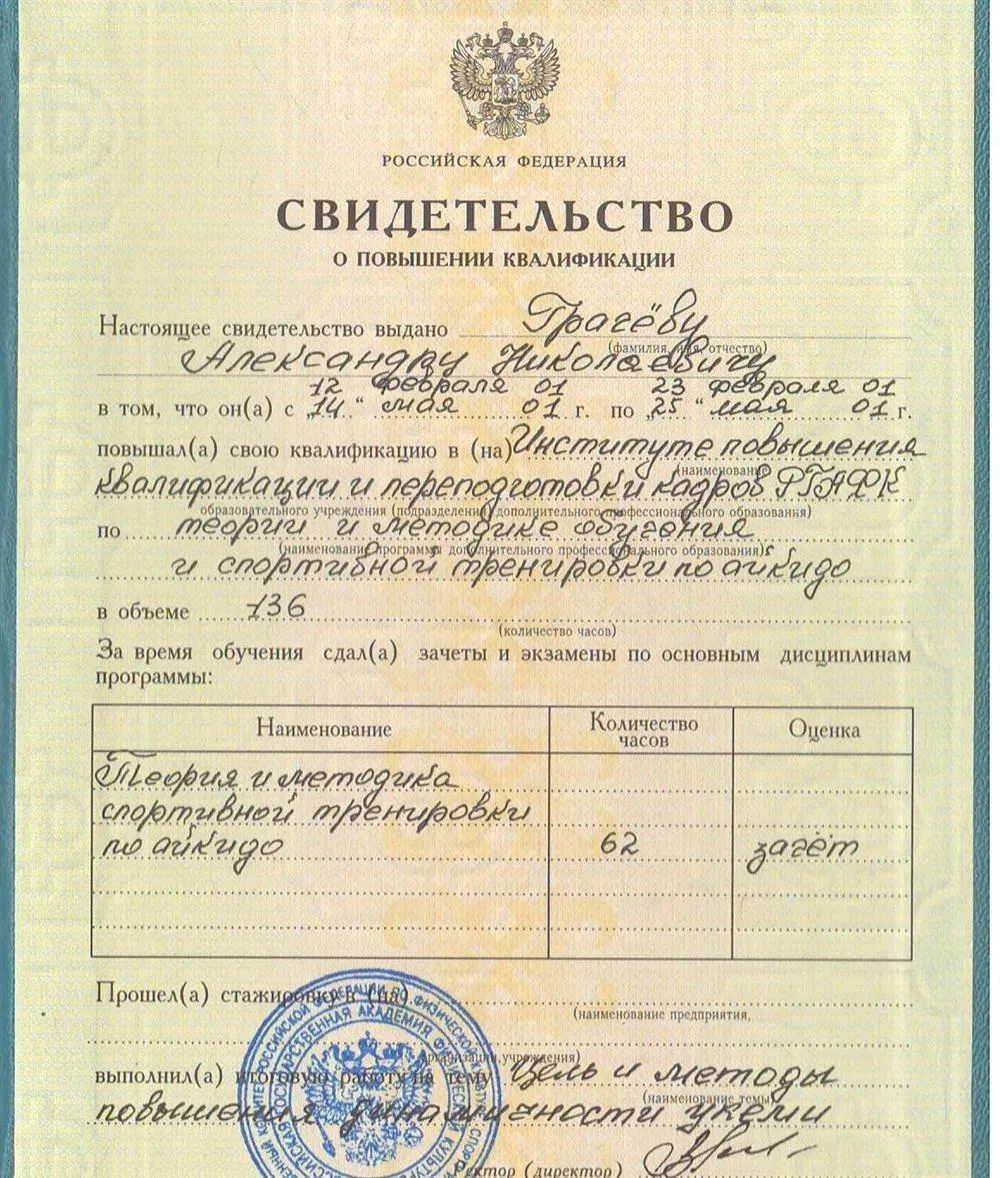 РОССИЙСКАЯ ФЕДЕРАЦИЯ
СВИДЕТЕЛЬСТВО
О ПОВЫШЕНИИ КВАЛИФИКАЦИИ
Настоящее свидетельство выдано Грачёву
(фамилия, имя, отчество)
Александру Николаевичу
12 февраля 01 23 февраля 01
в том, что он(а) с „14“ мая 01 г. по „25“ мая 01 г.
повышал(а) свою квалификацию в (на) Институте повышения
(наименование
квалификации и переподготовки кадров РГАФК
образовательного учреждения (подразделения) дополнительного профессионального образования)
по теории и методике обучения
(наименование программы дополнительного профессионального образования)
и спортивной тренировки по айкидо
в объеме 136
(количество часов)
За время обучения сдал(а) зачеты и экзамены по основным дисциплинам
программы:
Наименование Количество часов Оценка
Теория и методика
спортивной тренировки
по айкидо 62 зачёт
Прошел(а) стажировку в (на)
(наименование предприятия,
организации, учреждения)
выполнил(а) итоговую работу на тему Цель и методы
(наименование темы)
повышения динамичности укеми
Ректор (директор)